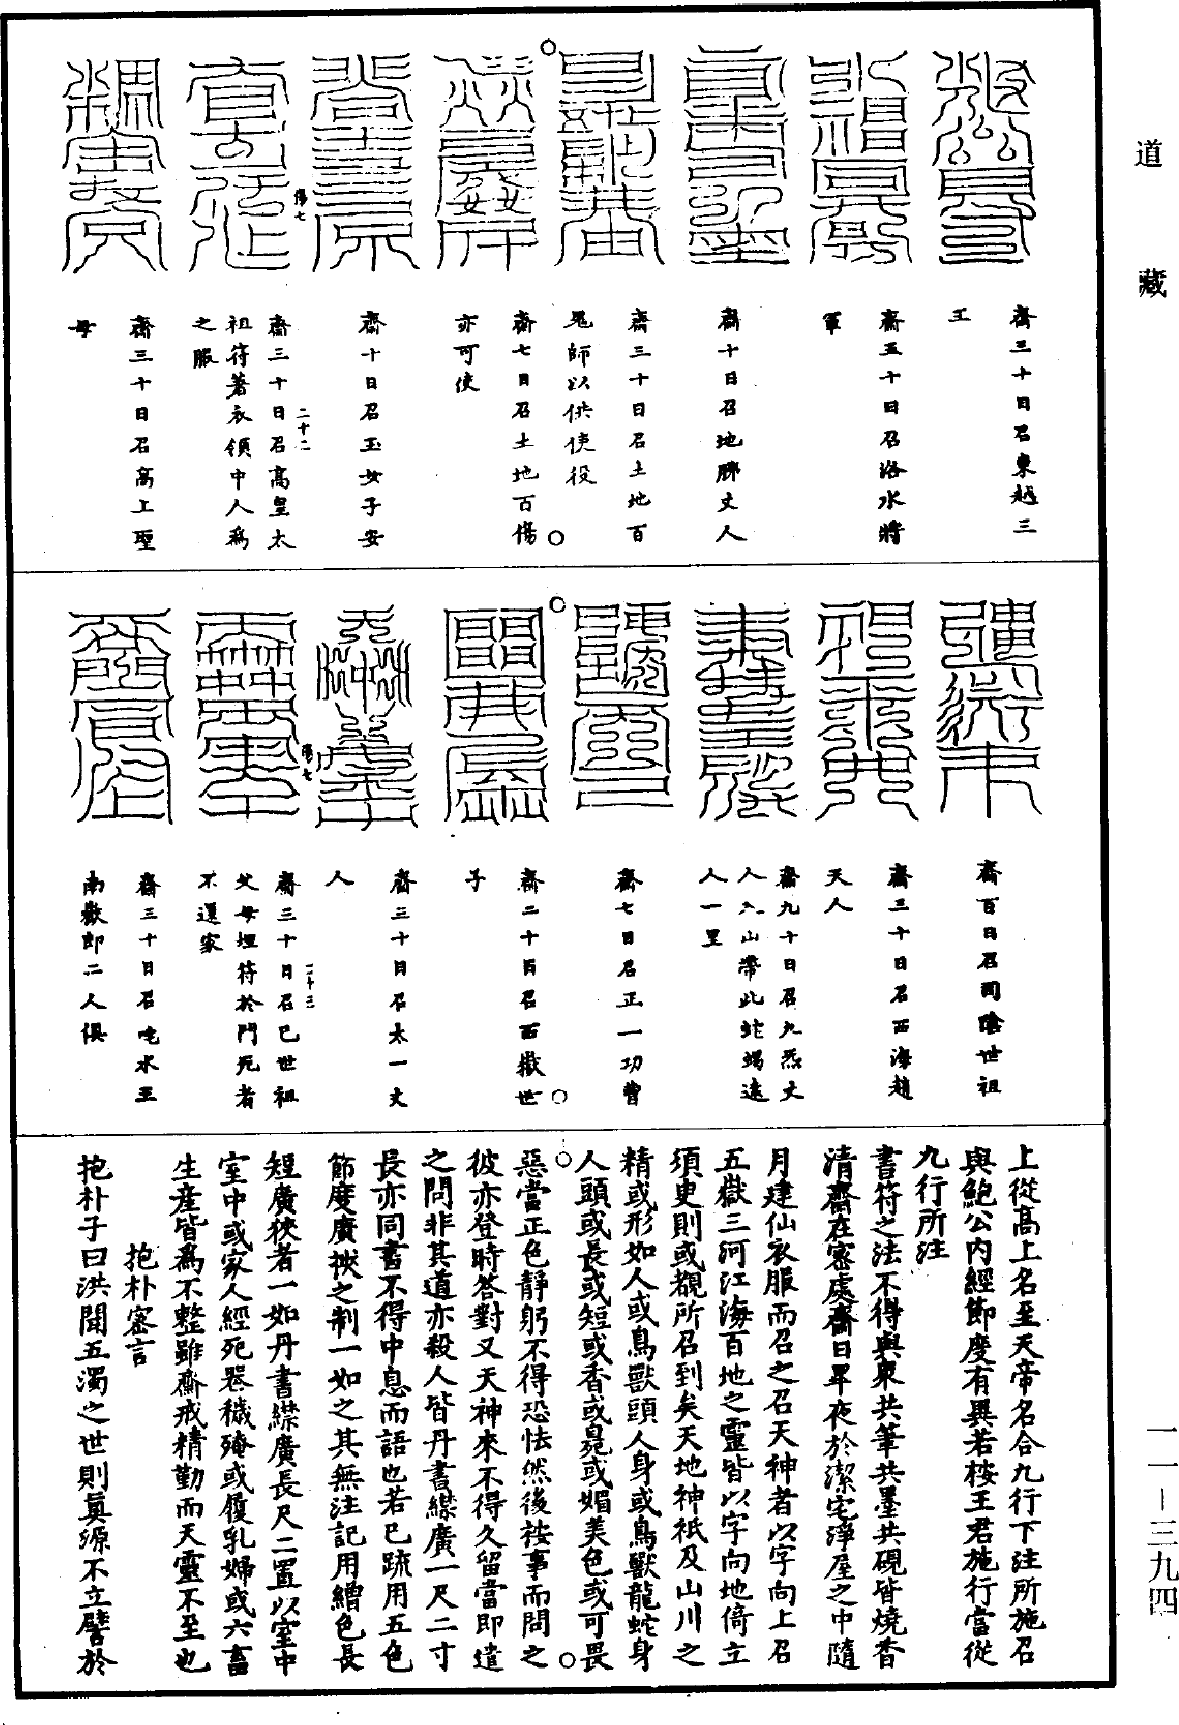 道藏
齋三十日召東越三
王
齋五十日召洛水將
軍
齋十日召地勝丈人
齋三十日召土地百
鬼師以供使役
齋七日召土地百傷
亦可使
齋十日召玉女子安
傷七
二十二
齋三十日召高皇太
祖符著衣領中人爲
之服
齋三十日召高上聖
母
齋百日召司陰世祖
齋三十日召西海趙
天人
齋九十日召九炁丈
人入山帶此蛇蝎遠
人一里
齋七日召正一功曹
齋二十日召西嶽世
子
齋三十日召太一丈
人
傷七
二十三
齋三十日召已世祖
父母埋符於門死者
不還家
齋三十日召吃水王
南嶽郎二人俱
上從高上名至天帝名合九行下注所施召
與鮑公內經節度有異若按王君施行當從
九行所注
書符之法不得與衆共筆共墨共硯皆燒香
清齋在密處齋日畢夜於潔宅淨屋之中隨
月建仙衣服而召之召天神者以字向上召
五嶽三河江海百地之靈皆以字向地倚立
須臾則或覩所召到矣天地神祇及山川之
精或形如人或鳥獸頭人身或鳥獸龍蛇身
人頭或長或短或香或臭或媚美色或可畏
惡當正色靜躬不得恐怯然後按事而問之
彼亦登時答對又天神來不得久留當即遣
之問非其道亦殺人皆丹書緤廣一尺二寸
長亦同書不得中息而語也若已疏用五色
節度廣狹之制一如之其無注記用繒色長
短廣狹者一如丹書緤廣長尺二置以室中
室中或家人經死器穢殗或履乳婦或六畜
生産皆爲不整雖齋戒精勤而天靈不至也
抱朴密言
抱朴子曰洪聞五濁之世則真源不立譬於
一一－三九四